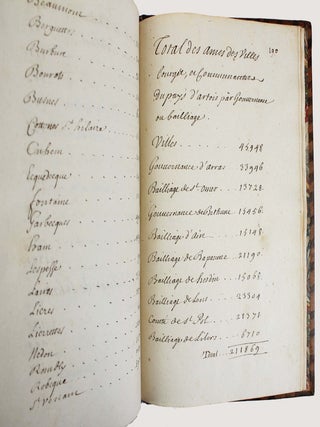 Beaumont
Berguettes
Burbure
Bourets
Busnes
Cottenes St hilaire
Cuhem
Lequedeque
fontaine
Garbecques
ham
Lespesse
Lieres
Lierrettes
Nedon
Rombly
Robeque
St venant
Total des ames des Villes
bourgs, et Communautés
du pays d'artois par Gouvernance
ou bailliage.
100
Villes . . . . . 45948
Gouvernance d'arras . . 33946
Bailliage de St omer . . 15728
Gouvernance de Bethune . . 15456
Bailliage d'aire . . . 15148
Bailliage de Bapaume . . 21190
Bailliage de hesdin . . 15065
Bailliage de Lens . . 23304
Comté de St Pol . . . 21371
Bailliage de Lilers . . . 6710
Total . . 211869